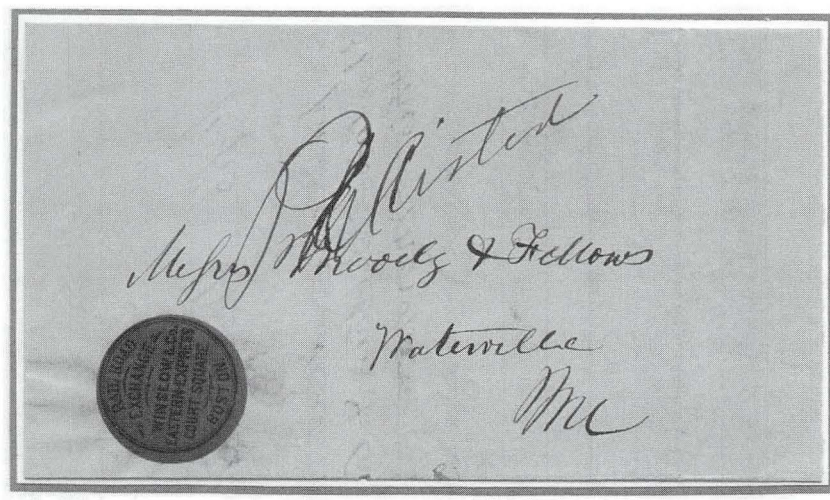 Registered
Messrs Moody & Fellows
Waterville
Me
RAIL ROAD
EXCHANGE
WINSLOW & CO.
EASTERN EXPRESS
COURT SQUARE
BOSTON